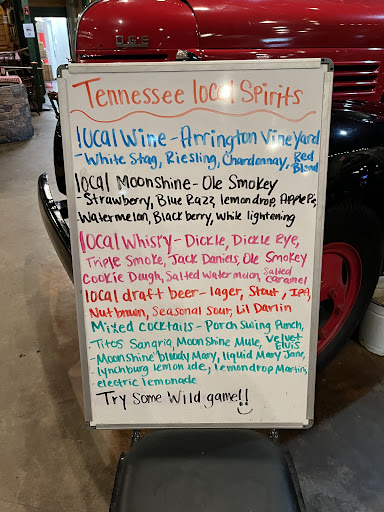 Tennessee local Spirits
local Wine - Arrington Vineyard
- White Stag, Riesling, Chardonnay, Red Blend
local Moonshine - Ole Smokey
- Strawberry, Blue Razz, lemondrop, Apple Pie,
Watermelon, Blackberry, White lightening
local Whisky - Dickle, Dickle Rye,
Triple Smoke, Jack Daniels, Ole Smokey
Cookie Dough, Salted Watermelon, Salted Caramel
local draft beer - lager, Stout, IPA,
Nut brown, Seasonal sour, Lil Darlin
Mixed cocktails - Porch Swing Punch,
Titos Sangria, Moonshine Mule, Velvet Elvis
- Moonshine bloody Mary, liquid Mary Jane,
lynchburg lemonade, lemondrop Martini,
- electric lemonade
Try Some Wild game!!